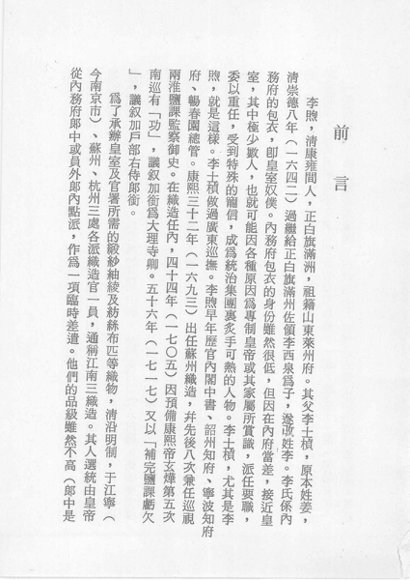 前言
李煦，清康雍間人，正白旗滿洲，祖籍山東萊州府。其父李士楨，原本姓姜，
清崇德八年（一六四二）過繼給正白旗滿州佐領李西泉爲子，遂改姓李。李氏係內
務府的包衣，卽皇室奴僕。內務府包衣的身份雖然很低，但因在內府當差，接近皇
室，其中極少數人，也就可能因各種原因爲專制皇帝或其家屬所賞識，派任要職，
委以重任，受到特殊的寵信，成爲統治集團裏炙手可熱的人物。李士楨，尤其是李
煦，就是這樣。李士楨做過廣東巡撫。李煦早年歷官內閣中書、韶州知府、寧波知府
府、暢春園總管。康熙三十二年（一六九三）出任蘇州織造，幷先後八次兼任巡視
兩淮鹽課監察御史。在織造任內，四十四年（一七〇五）因預備康熙帝玄燁第五次
南巡有「功」，議叙加銜爲大理寺卿。五十六年（一七一七）又以「補完鹽課虧欠
」，議叙加戶部右侍郎銜。
爲了承辦皇室及官署所需的緞紗紬綾及紡絲布匹等織物，清沿明制，于江寧（
今南京市）、蘇州、杭州三處各派織造官一員，通稱江南三織造。其人選統由皇帝
從內務府郎中或員外郎內點派，作爲一項臨時差遣。他們的品級雖然不高（郎中是